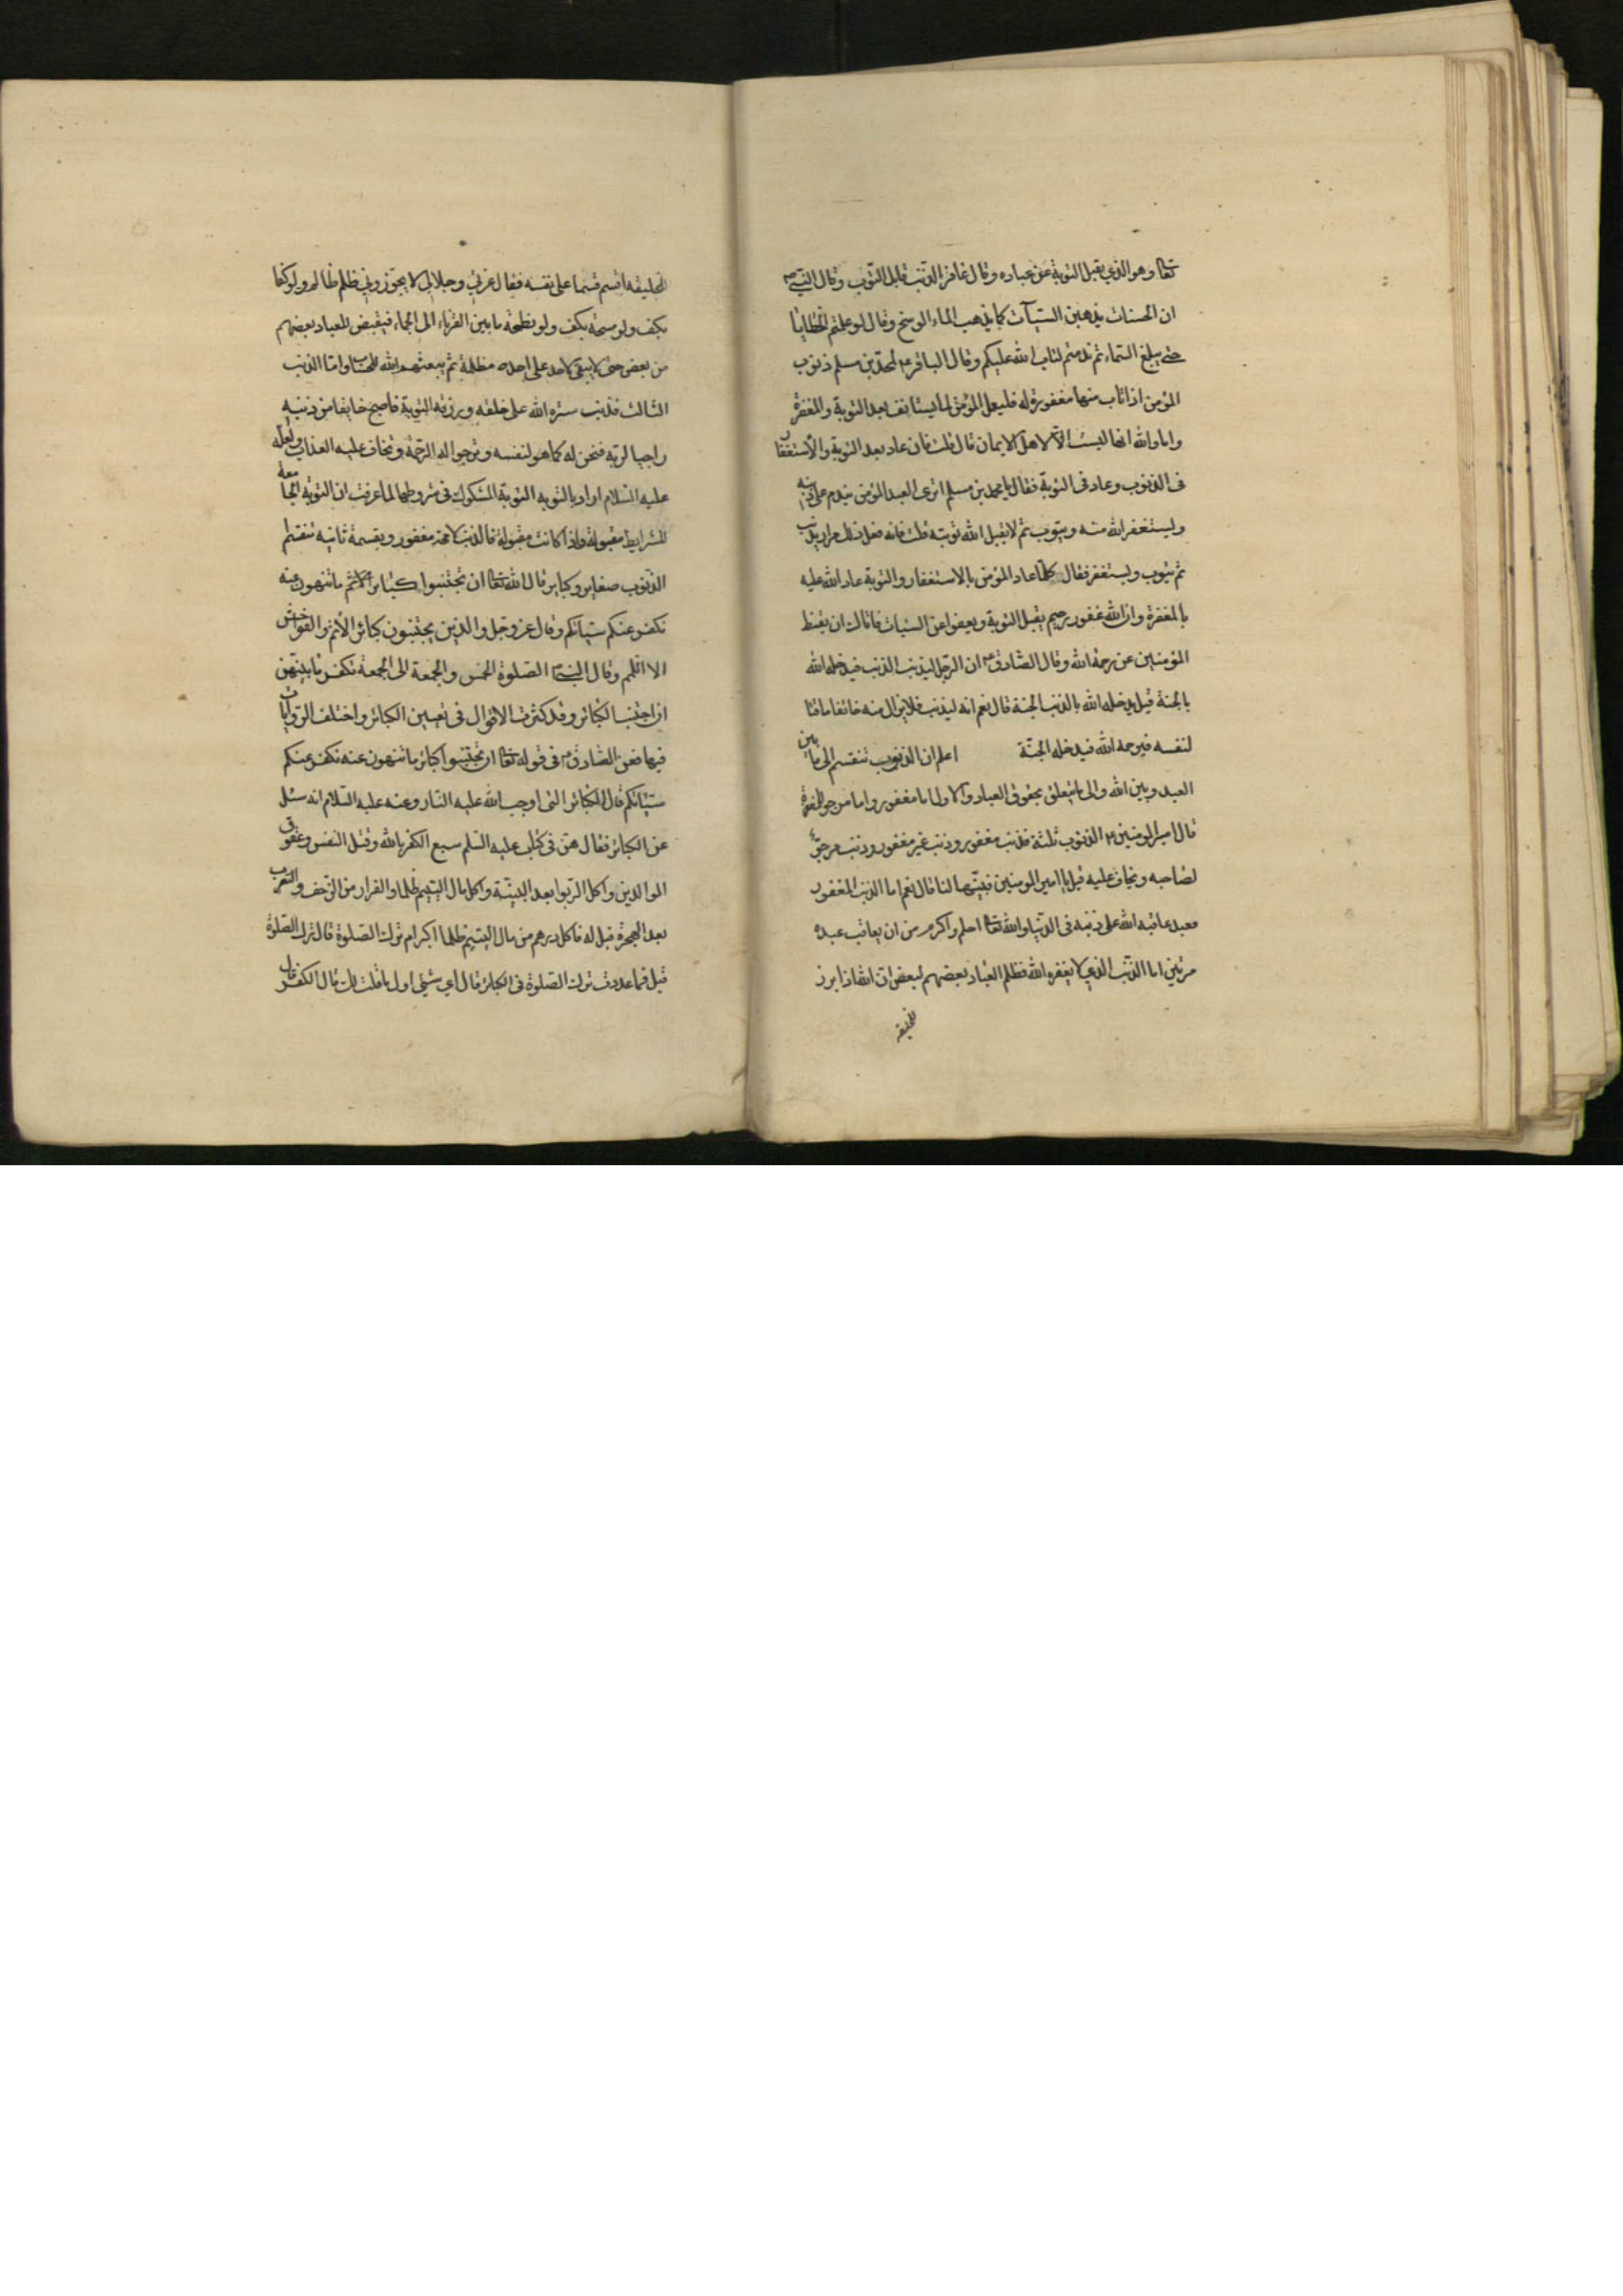 تعالى وهو الذي يقبل التوبة عن عباده وقال غافر الذنب قابل التوب وقال النبي ص
ان الحسنات يذهبن السيآت كما يذهب الماء الوسخ وقال لو علتم الخطايا
حتى يبلغ السماء ثم ندمتم لتاب الله عليكم وقال الباقر ع لمحمد بن مسلم ذنوب
المؤمن اذا تاب منها مغفورة له فليعمل المؤمن لما يستانف بعد التوبة والمغفرة
واما والله انها ليست الا لاهل الايمان قال قلت فان عاد بعد التوبة والاستغفار
فى الذنوب وعاد فى التوبة فقال يا محمد بن مسلم اترى العبد المؤمن يندم على ذنبه
ويستغفر الله منه ويتوب ثم لا يقبل الله توبته قلت فانه فعل ذلك مرارا يذنب
ثم يتوب ويستغفر فقال كلما عاد المؤمن بالاستغفار والتوبة عاد الله عليه
بالمغفرة وان الله غفور رحيم يقبل التوبة ويعفو عن السيات فاياك ان يقنط
المؤمنين عن رحمة الله وقال الصادق ع ان الرجل ليذنب الذنب فيدخله الله
بالجنة قيل يدخله الله بالذنب الجنة قال نعم انه ليذنب فلا يزال منه خائفا ماقتا
لنفسه فيرحمه الله فيدخله الجنة اعلم ان الذنوب تنقسم الى ما بين
العبد وبين الله والى ما يتعلق بحقوق العباد والاول اما مغفور واما مرجو المغفرة
قال امير المومنين ع الذنوب ثلثة فذنب مغفور وذنب غير مغفور وذنب مرجو
لصاحبه ويخاف عليه قيل يا امير المومنين فبينها لنا قال نعم اما الذنب المغفور
فعبد عاقبه الله على ذنبه فى الدنيا والله تعالى احلم واكرم من ان يعاقب عبده
مرتين اما الذنب الذي لا يغفره الله فظلم العباد بعضهم لبعض ان الله اذا برز
لخليقه
لخليقه اقسم قسما على نفسه فقال وعزتي وجلالي لا يجوزني ظلم ظالم ولو كفا
بكف ولو مسحة بكف ولو نطحة ما بين القرناء الى الجماء فيقبض للعباد بعضهم
من بعض حتى لا يبقى لاحد على احد مظلمة ثم يبعثهم الله للحساب واما الذنب
الثالث فذنب ستره الله على خلقه ورزقه التوبة فاصبح خايفا من ذنبه
راجيا لربه فنحن له كما هو لنفسه ونرجو له الرحمة ونخاف عليه العذاب ولعله
عليه السلام اراد بالتوبه التوبة المشكوك فى شروطها لما عرفت ان التوبة الجامعة
للشرايط مقبولة واذا كانت مقبولة فالذنب لا محة مغفور وبقسمة ثانيه تنقسم
الذنوب صغاير وكباير قال الله تعالى ان تجتنبوا كبائر الاثم ما تنهون عنه
نكفر عنكم سيآتكم وقال عز وجل والذين يجتنبون كبائر الاثم والفواحش
الا اللمم وقال النبي ص الصلوة الخمس والجمعة الى الجمعة تكفر ما بينهن
ان اجتنب الكبائر وقد كثرت الاقوال فى تعيين الكبائر واختلف الروايات
فيها فعن الصادق ع فى قوله تعالى ان تجتنبوا كبائر ما تنهون عنه نكفر عنكم
سيئاتكم قال الكبائر التى اوجب الله عليه النار وعنه عليه السلام انه سئل
عن الكبائر فقال هن فى كتاب عليه السلم سبع الكفر بالله وقتل النفس وعقوق
الوالدين واكل الربوا بعد البينة واكل مال اليتيم ظلما والفرار من الزحف والتعرب
بعد الهجرة قيل له فاكل درهم من مال اليتيم ظلما اكبر ام ترك الصلوة قال ترك الصلوة
قيل فما عددت ترك الصلوة فى الكبائر قال اي شيئى اول ما قلت لك قال الكفر قال